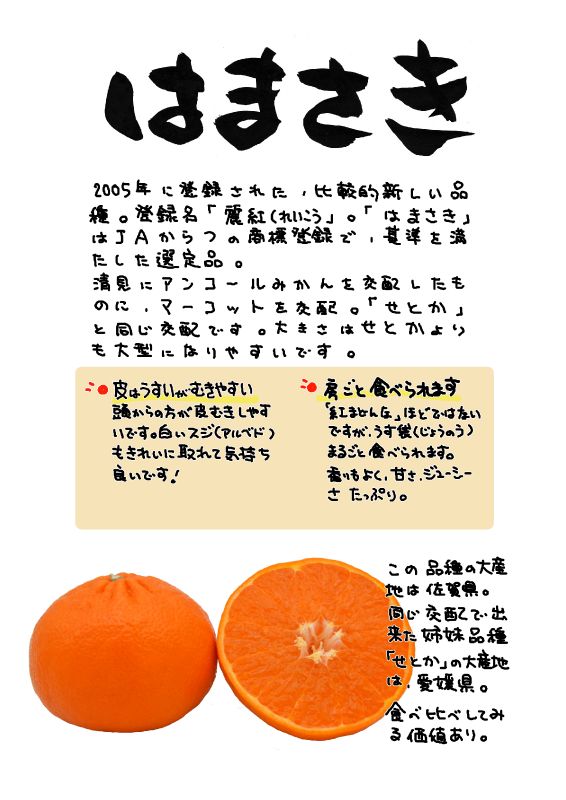 はまさき
2005年に登録された、比較的新しい品
種。登録名「麗紅(れいこう)」。「はまさき」
はJAからつの商標登録で、基準を満
たした選定品。
清見にアンコールみかんを交配したも
のに、マーコットを交配。「せとか」
と同じ交配です。大きさはせとかより
も大型になりやすいです。
皮はうすいがむきやすい
頭からの方が皮むきしやす
いです。白いスジ(アルベド)
もきれいに取れて気持ち
良いです!
房ごと食べられます
「紅まどんな」ほどではない
ですが、うす袋(じょうのう)
まるごと食べられます。
香りもよく、甘さ、ジューシー
さ たっぷり。
この品種の大産
地は佐賀県。
同じ交配で出
来た姉妹品種
「せとか」の大産地
は、愛媛県。
食べ比べしてみ
る価値あり。